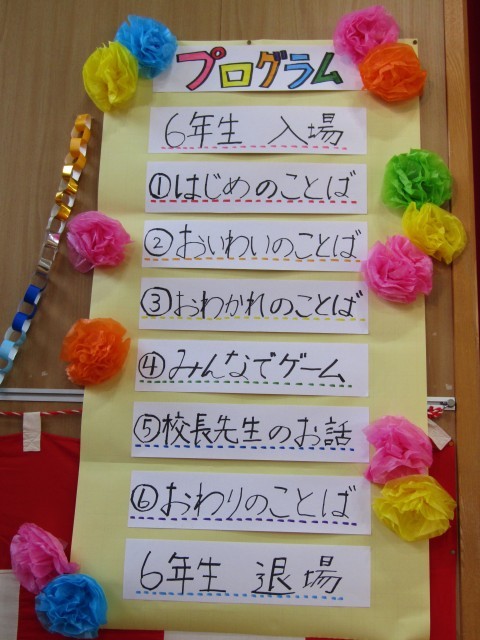 プログラム
6年生 入場
①はじめのことば
②おいわいのことば
③おわかれのことば
④みんなでゲーム
⑤校長先生のお話
⑥おわりのことば
6年生 退場